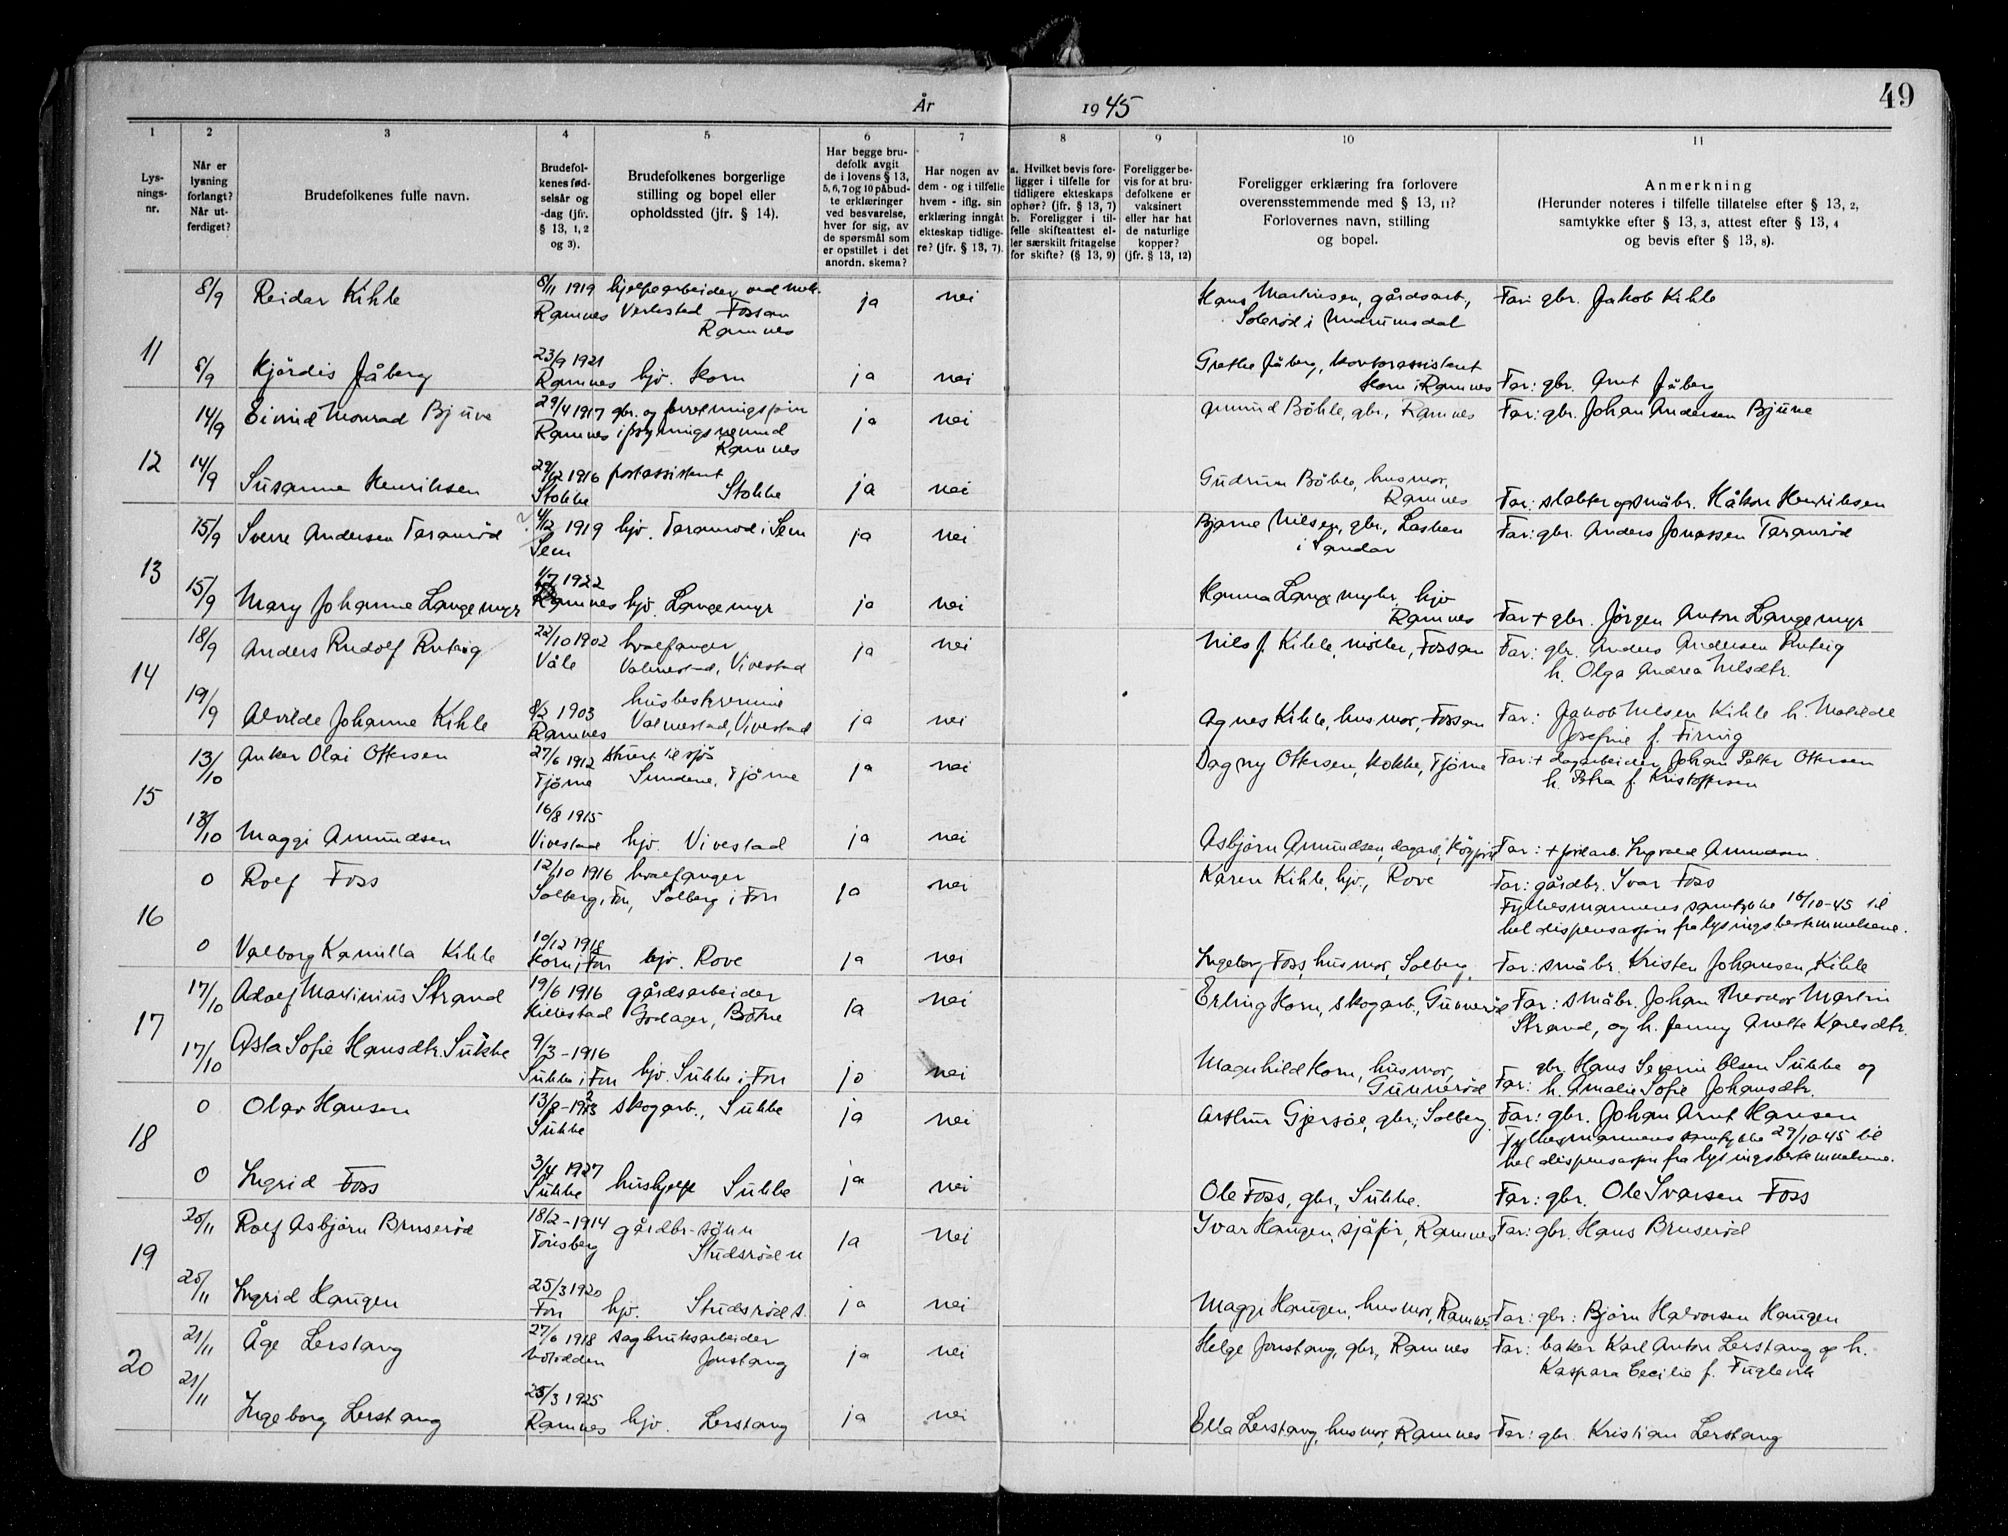 År 1945
49
1 2 3 4 5 6 7 8 9 10 11
Lys-
nings-
nr.
Når er
lysning
forlangt?
Når ut-
ferdiget?
Brudefolkenes fulle navn.
Brudefol-
kenes fød-
selsår og
-dag (jfr.
§ 13, 1, 2
og 3).
Brudefolkenes borgerlige
stilling og bopel eller
opholdssted (jfr. § 14).
Har begge bru-
defolk avgit
de i lovens § 13,
5, 6, 7 og 10 påbud-
te erklæringer
ved besvarelse,
hver for sig, av
de spørsmål som
er opstillet i det
anordn. skema?
Har nogen av
dem - og i tilfelle
hvem - iflg. sin
erklæring inngått
ekteskap tidlige-
re? (jfr. § 13, 7).
a. Hvilket bevis fore-
ligger i tilfelle for
tidligere ekteskaps
ophør? (jfr. § 13, 7)
b. Foreligger i til-
felle skifteattest el-
ler særskilt fritagelse
for skifte? (§ 13, 9)
Foreligger be-
vis for at bru-
defolkene er
vaksinert
eller har hat
de naturlige
kopper?
(jfr. § 13, 12)
Foreligger erklæring fra forlovere
overensstemmende med § 13, 11?
Forlovernes navn, stilling
og bopel.
Anmerkning
(Herunder noteres i tilfelle tillatelse efter § 13, 2,
samtykke efter § 13, 3, attest efter § 13, 4
og bevis efter § 13, 8).
8/9 Reidar Kihle 8/11 1919 hjelpearbeider ved mek. ja nei Hans Martinsen, gårdsarb., Far: gbr. Jakob Kihle
Ramnes Verksted Fossan Solerød i Undrumsdal
Ramnes
11
8/9 Hjördis Jåberg 23/9 1921 Ramnes hjv. Horn ja nei Grethe Jåberg, kontorassistent
Horn i Ramnes Far: gbr. Arnt Jåberg
14/9 Eivind Monrad Bjune 29/4 1917 gbr. og ja nei Amund Böhle, gbr., Ramnes Far: gbr. Johan Andersen Bjune
Ramnes i forsyningsnemnd
Ramnes
12
14/9 Susanne Henriksen 29/12 1916 postassistent ja nei Gudrun Böhle, husmor,
Stokke Stokke Ramnes Far: slakter og småbr. Håkon Henriksen
15/9 Sverre Andersen Taranrød 4/12 1919 hjv. Taranrød i Sem ja nei Bjarne Nilsen, gbr., Lasken Far: gbr. Anders Jonassen Taranrød
Sem i Sandar
13
15/9 Mary Johanne Langemyr 1/7 1922 Ramnes hjv. Langemyr ja nei Hanna Langemyhr, hjv
Ramnes Far + gbr. Jörgen Anton Langemyr
18/9 Anders Rudolf Rutrig 22/10 1902 hvalfanger ja nei Nils J. Kihle, møller, Fossan Far: gbr. Anders Andersen Rutrig
Våle Valmestad, Vivestad h. Olga Andrea Nilsdtr.
14
19/9 Alvilde Johanne Kihle 8/2 1903 husbestyrerinne ja nei Agnes Kihle, husmor, Fossan Far: Jakob Nilsen Kihle h. Matilde
Ramnes Valmestad, Vivestad Josefine f. Firing
13/10 Anker Olai Ottersen 27/6 1912 til sjøs ja nei Dagny Ottersen, kokke, Tjöme Far: + dagarbeider Johan Petter Ottersen
Tjøme Sundene, Tjöme h. Petra f. Kristoffersen
15
13/10 Maggi Amundsen 16/8 1915
Vivestad hjv. Vivestad ja nei Asbjørn Amundsen, dagarb., Far: + jordarb. Ingvald Amundsen
0 Rolf Foss 12/10 1916 hvalfanger ja nei Karen Kihle, hjv., Rove Far: gårdbr. Ivar Foss
Solberg i Fon, Solberg i Fon Fylkesmannens samtykke 16/10-45 til
hel dispensasjon fra lysningsbestemmelsene.
16
0 Valborg Kamilla Kihle 10/12 1918
Horn i Fon hjv. Rove ja nei Ingeborg Foss, husmor, Solberg, Far: småbr. Kristen Johansen Kihle
17/10 Adolf Martinius Strand 19/6 1916 gårdsarbeider ja nei Erling Horn, skogarb., Gunnerød Far: småbr. Johan Theodor Martin
Hillestad Godager, Botne Strand, og h. Jenny Anette Karlsdtr.
17
17/10 Asta Sofie Hansdtr. Sukke 9/3-1916
Sukke i Fon hjv. Sukke i Fon ja nei Magnhild Horn, husmor, Gunnerød Far: gbr. Hans Severin Olsen Sukke og
h. Amalie Sofie Johansdtr.
0 Olav Hansen 13/8-1923 skogarb., Sukke ja nei Arthur Gjersøe, gbr., Solberg. Far: gbr. Johan Arnt Hansen
Sukke Fylkesmannens samtykke 29/10-45 til
hel dispensasjon fra lysningsbestemmelsene.
18
0 Ingrid Foss 3/4 1927
Sukke hushjelp Sukke ja nei Ole Foss, gbr., Sukke. Far: gbr. Ole Ivarsen Foss
20/11 Rolf Asbjørn Bruserød 18/2-1914 gårdbr-sönn ja nei Ivar Haugen, sjåfør, Ramnes Far: gbr. Hans Bruserød
Tönsberg Studsrød n
19
20/11 Ingrid Haugen 25/3 1920
Fon hjv. Studsrød s. ja nei Maggi Haugen, husmor, Ramnes Far: gbr: Björn Halvorsen Haugen
21/11 Åge Lerstang 27/6 1918 sagbruksarbeider ja nei Helge Jonstang, gbr., Ramnes Far: baker Karl Anton Lerstang og h.
Notodden Jonstang Kaspara Cecilie f. Fuglevik
20
21/11 Ingeborg Lerstang 25/3 1925
Ramnes hjv. Lerstang ja nei Ella Lerstang, husmor, Ramnes Far: gbr. Kristian Lerstang